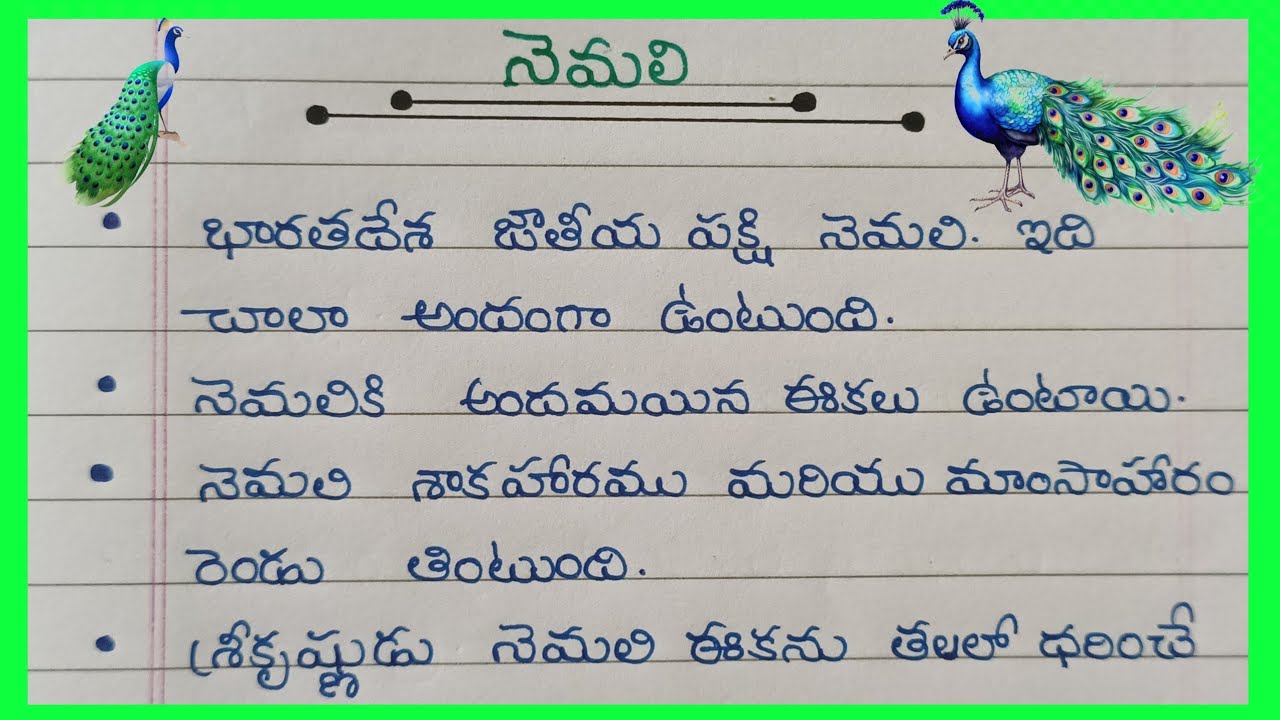 నెమలి
• భారతదేశ జాతీయ పక్షి నెమలి. ఇది
చాలా అందంగా ఉంటుంది.
• నెమలికి అందమయిన ఈకలు ఉంటాయి.
• నెమలి శాకహారము మరియు మాంసాహారం
రెండు తింటుంది.
• శ్రీకృష్ణుడు నెమలి ఈకను తలలో ధరించే